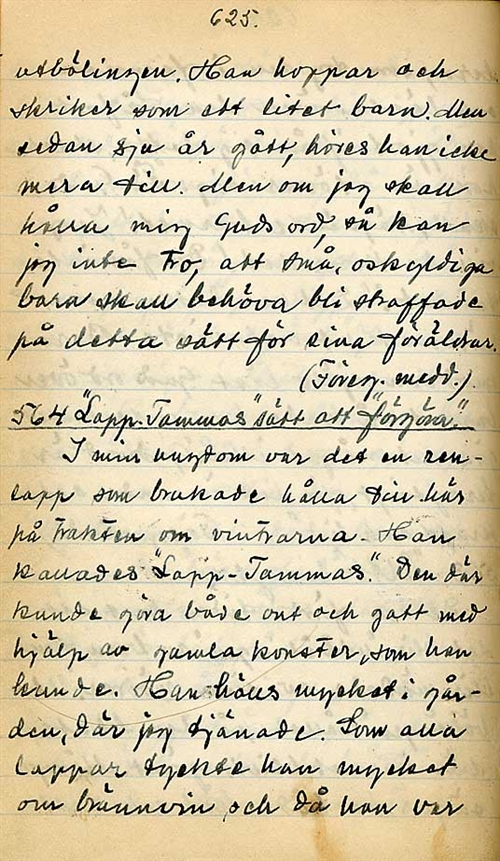 625.
utbölingen. Han hoppar och
skriker som ett litet barn. Men
sedan sju år gått, höres han icke
mera till. Men om jag skall
hålla mig Guds ord, så kan
jag inte tro, att små, oskyldiga
barn skall behöva bli straffade
på detta sätt för sina föräldrar.
(Föreg. medd.)
564 "Lapp-Tammas" sätt att "förgöra."
I min ungdom var det en ren-
lapp som brukade hålla till här
på trakten om vintrarna. Han
kallades "Lapp-Tammas". Den där
kunde göra både ont och gott med
hjälp av gamla konster, som han
kunde. Han hölls mycket i går-
den, där jag tjänade. Som alla
lappar tyckte han mycket
om brännvin och då han var